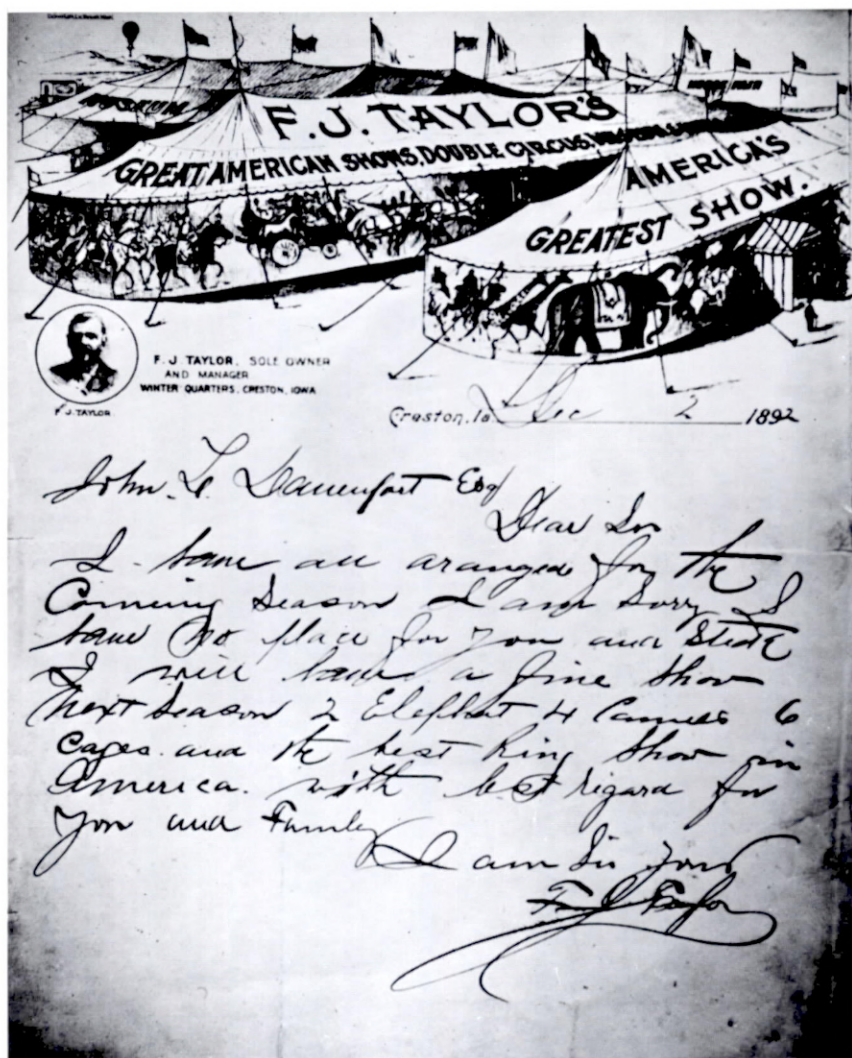 MUSEUM
F.J. TAYLOR'S
GREAT AMERICAN SHOWS, DOUBLE CIRCUS,
AMERICA'S
GREATEST SHOW.
F. J. TAYLOR, SOLE OWNER
AND MANAGER
WINTER QUARTERS, CRESTON, IOWA
F. J. TAYLOR.
Creston, Ia Dec 2 1892
John. L. Davenport Esq
Dear Sir
I have all aranged for the
Coming Season I am Sorry I
have no place for you and
I will have a fine Show
next Season 2 Elephat 4 Camels 6
Cages. and the best Ring Show in
America. with best regard for
you and Family
I am Sir yours
F J Taylor